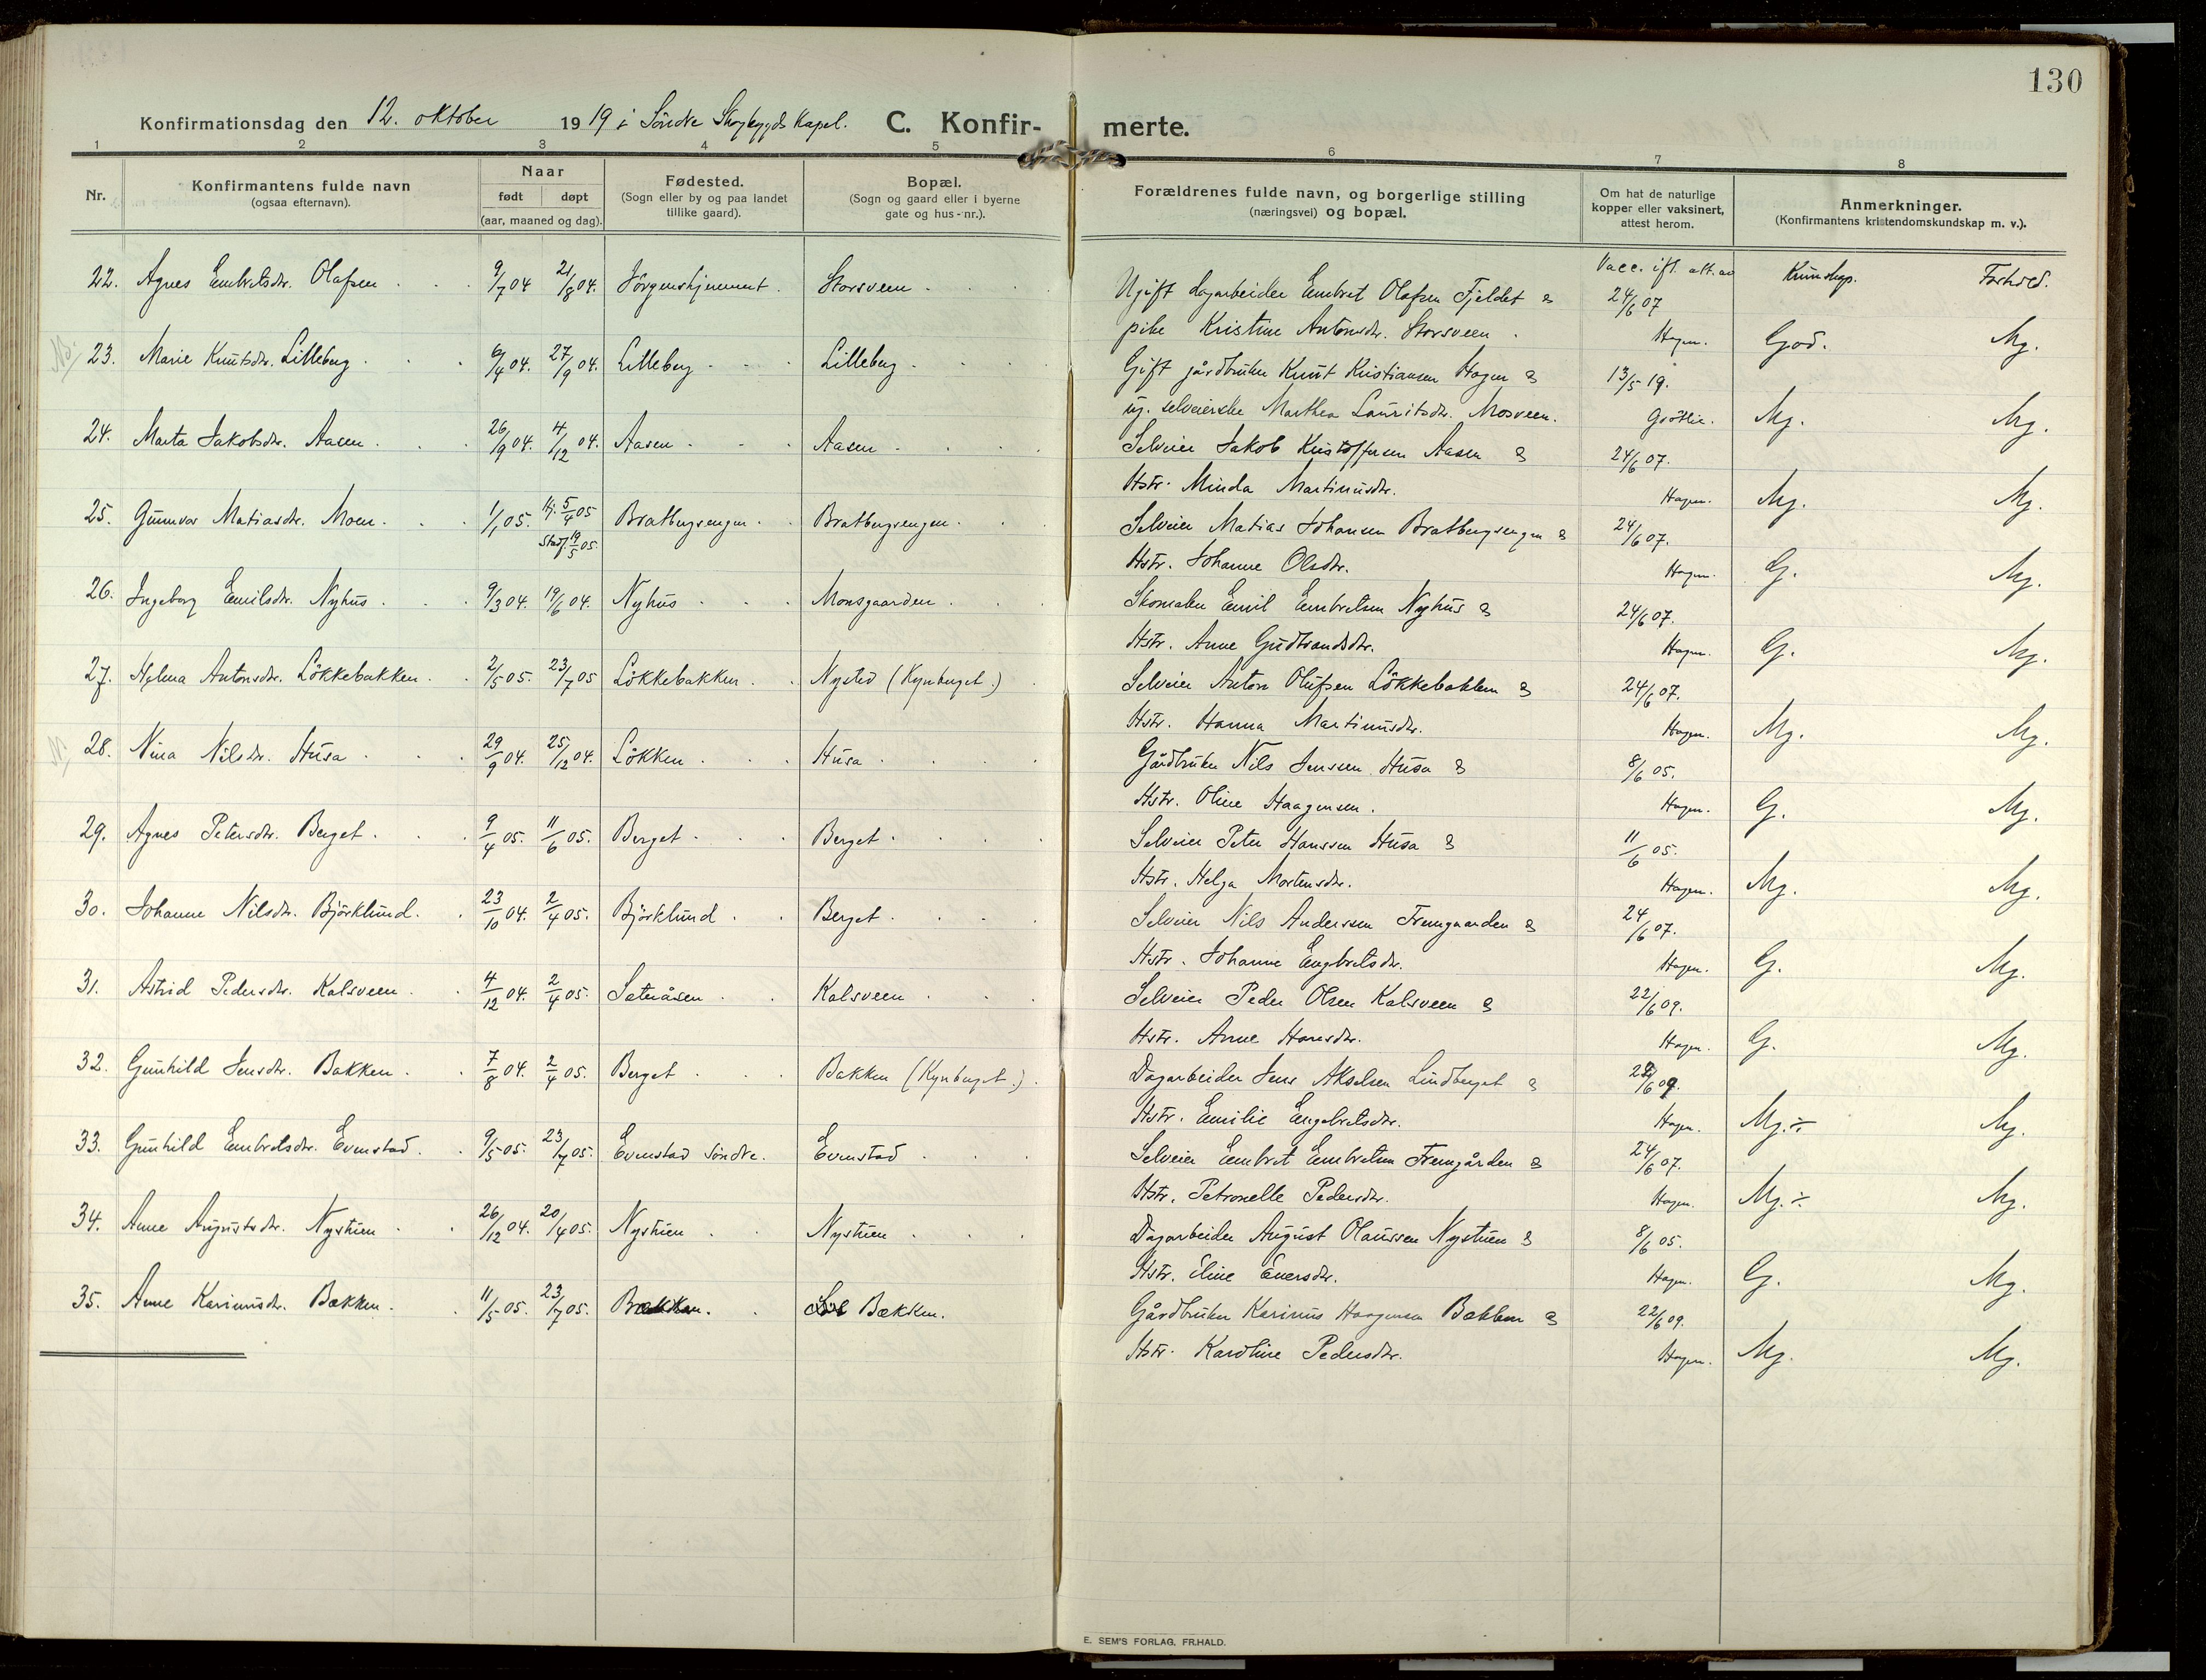 130
Konfirmationsdag den 12. oktober 1919 i Söndre Skogbygds Kapel. C. Konfirmerte.
1 2 3 4 5 6 7 8
Nr.
Konfirmantens fulde navn
(ogsaa efternavn).
Naar
født døpt
(aar, maaned og dag).
Fødested.
(Sogn eller by og paa landet
tillike gaard).
Bopæl.
(Sogn og gaard eller i byerne
gate og hus-nr.).
Forældrenes fulde navn, og borgerlige stilling
(næringsvei) og bopæl.
Om hat de naturlige
kopper eller vaksinert,
attest herom.
Anmerkninger.
(Konfirmantens kristendomskundskap m. v.).
Vacc. ifl. att. av Kunskap. Forhold.
22. Agnes Embretsdr. Olafsen 9/7 04 21/8 04. Jörgenshjemmet. Storsveen Ugift dagarbeider Embret Olafsen Fjeldet & 24/6 07
pike Kristine Antonsdr. Storsveen. Hagen. God. Mg.
23. Marie Knutsdr. Lilleberg 6/4 04. 27/9 04. Lilleberg Lilleberg Gift gårdbruker Knut Kristiansen Hagen & 13/5 19.
ug. selveierske Marthea Lauritsdr. Mosveen. Grötlie. Mg. Mg.
24. Marta Jakobsdr. Aasen 26/9 04. 4/12 04. Aasen Aasen Selveier Jakob Kristoffersen Aasen & 24/6 07.
Hstr. Minda Martinusdr. Hagen. Mg. Mg.
25. Gunvor Matiasdr. Moen 1/1 05. Hj. 5/4 05 Stadf. 19/5 05. Bratbergsengen Bratbergsengen Selveier Matias Johansen Bratbergsengen & 24/6 07.
Hstr. Johanne Olsdr. Hagen. G. Mg.
26. Ingeborg Emilsdr. Nyhus 9/3 04. 19/6 04. Nyhus Monsgaarden Skomaker Emil Embretsen Nyhus & 24/6 07.
Hstr. Anne Gudbrandsdr. Hagen. G. Mg.
27. Helma Antonsdr. Lökkebakken 2/5 05. 23/7 05 Lökkebakken Nysted (Kynberget.) Selveier Anton Olufsen Lökkebakken & 24/6 07.
Hstr. Hanna Martinusdr. Hagen. Mg. Mg.
28. Nina Nilsdr. Husa 29/9 04. 25/12 04. Lökken Husa Gårdbruker Nils Jenssen Husa & 8/6 05.
Hstr. Oline Haagensen. Hagen. G. Mg.
29. Agnes Petersdr. Berget 9/4 05. 11/6 05. Berget Berget Selveier Peter Hanssen Husa & 11/6 05.
Hstr. Helga Mortensdr. Hagen. Mg. Mg.
30. Johanne Nilsdr. Björklund. 23/10 04. 2/4 05. Björklund Berget Selveier Nils Anderssen Fremgaarden & 24/6 07.
Hstr. Johanne Engebretsdr. Hagen. G. Mg.
31. Astrid Pedersdr. Kalsveen 4/12 04. 2/4 05. Seteråsen Kalsveen Selveier Peder Olsen Kalsveen & 22/6 09.
Hstr. Anne Hansdr. Hagen. G. Mg.
32. Gunhild Jensdr. Bakken 7/8 04. 2/4 05. Berget Bakken (Kynberget.) Dagarbeider Jens Akselsen Lindberget & 22/6 09.
Hstr. Emilie Engebretsdr. Hagen. Mg.÷ Mg.
33. Gunhild Embretsdr. Evenstad 9/5 05. 23/7 05. Evenstad söndre. Evenstad Selveier Embret Embretsen Fremgården & 24/6 07.
Hstr. Petronelle Pedersdr. Hagen. Mg.÷ Mg.
34. Anne Augustsdr. Nystuen 26/12 04. 20/4 05. Nystuen Nystuen Dagarbeider August Olaussen Nystuen & 8/6 05.
Hstr. Eline Enersdr. Hagen. G. Mg.
35. Anne Karinusdr. Bækken. 11/5 05. 23/7 05. Bækken. Bækken. Gårdbruker Karinus Haagensen Bækken & 22/6 09.
Hstr. Karoline Pedersdr. Hagen. Mg. Mg.
E. SEM'S FORLAG, FR.HALD.